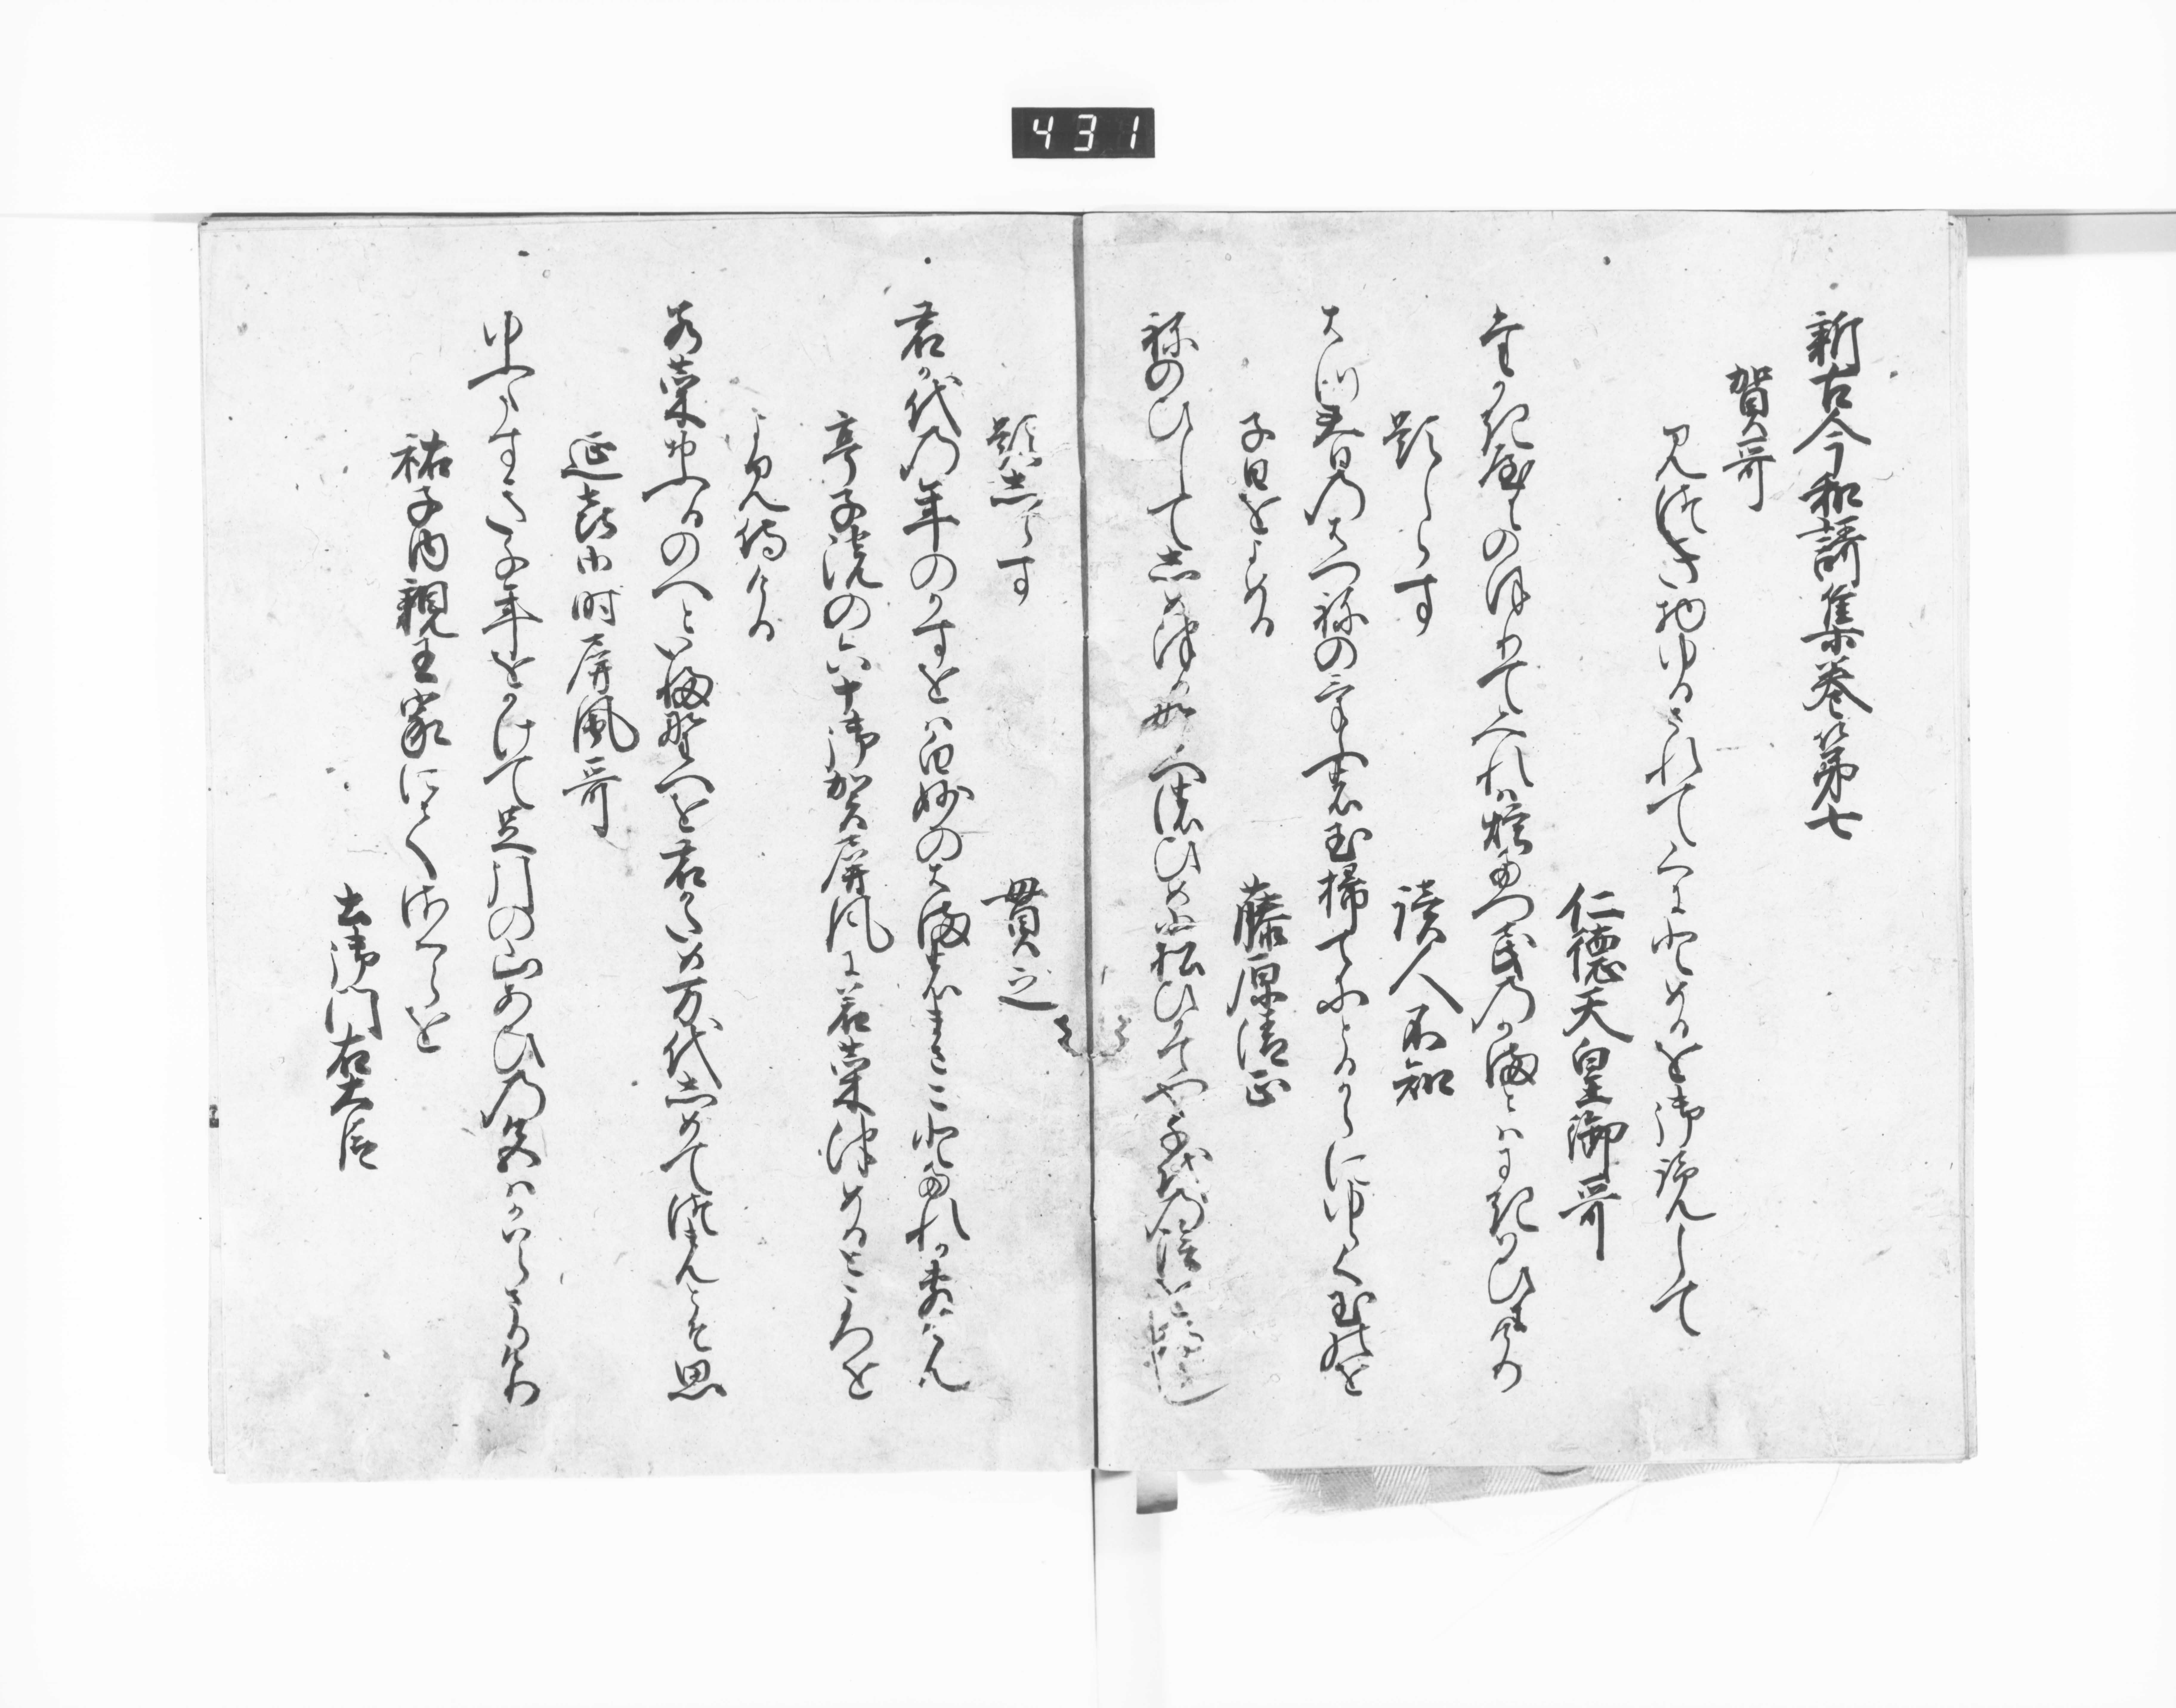 431
新古今和謌集巻第七
賀哥
みつき物ゆるされてくにとめるを御読んして
仁徳天皇御哥
たかき屋にのほりてみれは煙たつ民のかまとはにきはひにけり
題しらす
読人不知
はつ春のはつねのけふの玉掃てにとるからにゆらく玉のを
子日をよめる
藤原清正
ねのひしてしめつる野へのひめ小松ひかてや千代の
題しらす
貫之
君か代の年のかすをは白妙のはまのまさことたれかしきけん
亭子院の六十御賀屏風に若菜つめるところを
よみ侍ける
わか菜おふるのへといふ野へを君かため万代しめてつまんとそ思
延喜御時屏風哥
ゆふたすき千年をかけて足引の山あひの色はかはらさりけり
祐子内親王家にてさくらを
土御門右大臣